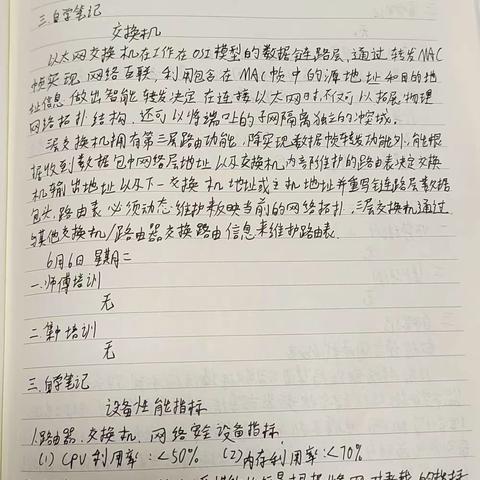 三.自学笔记
交换机
以太网交换机在工作在OSI模型的数据链路层,通过转发MAC
帧实现网络互联,利用包含在MAC帧中的源地址和目的地
址信息做出智能转发决定在连接以太网时,不仅可以拓展物理
网络拓扑结构,还可以将端口上的子网隔离独立的冲突域.
三层交换机拥有第三层路由功能,除实现数据帧转发功能外,能根
据收到数据包中网络层地址以及交换机内部所维护的路由表决定交换
机输出地址以及下一交换机地址或主机地址并重写链路层数据
包头,路由表必须动态维护来反映当前的网络拓扑,三层交换机通过
与其他交换机/路由器交换路由信息来维护路由表.
6月6日 星期二
一.师傅培训
无
二.集中培训
无
三.自学笔记
设备性能指标
1.路由器、交换机、网络安全设备指标
(1) CPU利用率:<50% (2)内存利用率:<70%